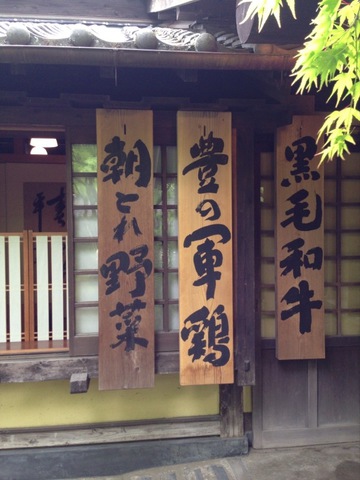 黒毛和牛
豊の軍鶏
朝とれ野菜